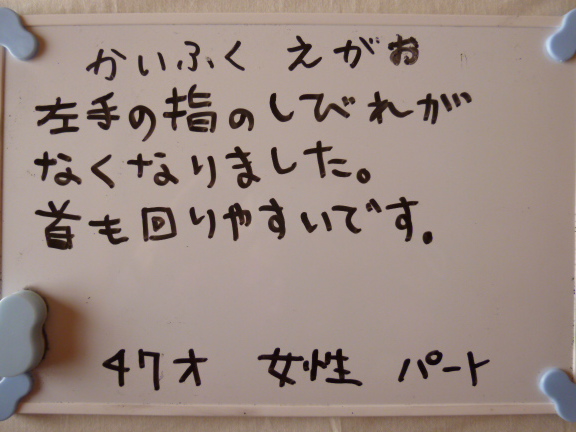 かいふく えがお
左手の指のしびれが
なくなりました。
首も回りやすいです。
47才 女性 パート